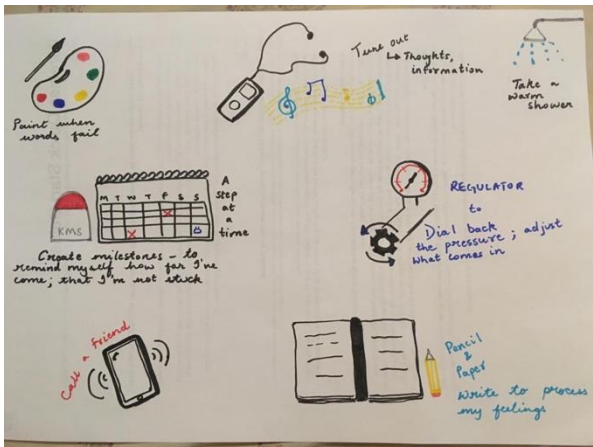 Paint when
words fail
Tune out
↳ Thoughts,
information
Take a
warm
shower
KMS
M T W T F S S
A
step
at
a
time
Create milestones - to
remind myself how far I've
come; that I'm not stuck
REGULATOR
to
Dial back
the pressure; adjust
what comes in
Call a Friend
Pencil
&
Paper
Write to process
my feelings